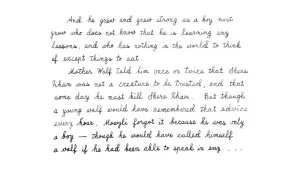 And he grew and grew strong as a boy must
grow who does not know that he is learning any
lessons, and who has nothing in the world to think
of except things to eat.
Mother Wolf told him once or twice that Shere
Khan was not a creature to be trusted, and that
some day he must kill Shere Khan. But though
a young wolf would have remembered that advice
every hour, Mowgli forgot it because he was only
a boy — though he would have called himself
a wolf if he had been able to speak in any ...